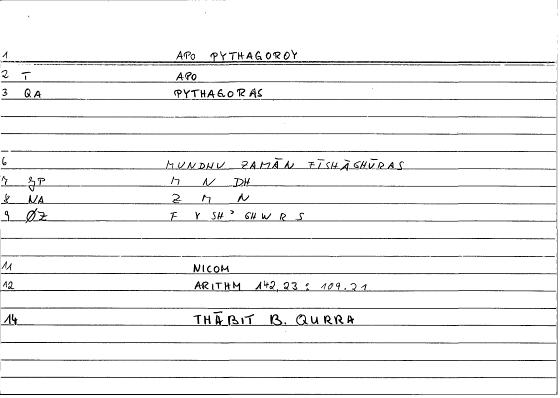 1 APO PYTHAGOROY
2 T APO
3 QA PYTHAGORAS
6 MUNDHU ZAMĀN FĪSHĀGHŪRAS
7 ȝP M N DH
8 NA Z M N
9 ØZ F Y SH ʾ GH W R S
11 NICOM
12 ARITHM 142,23 : 109.21
14 THĀBIT B. QURRA